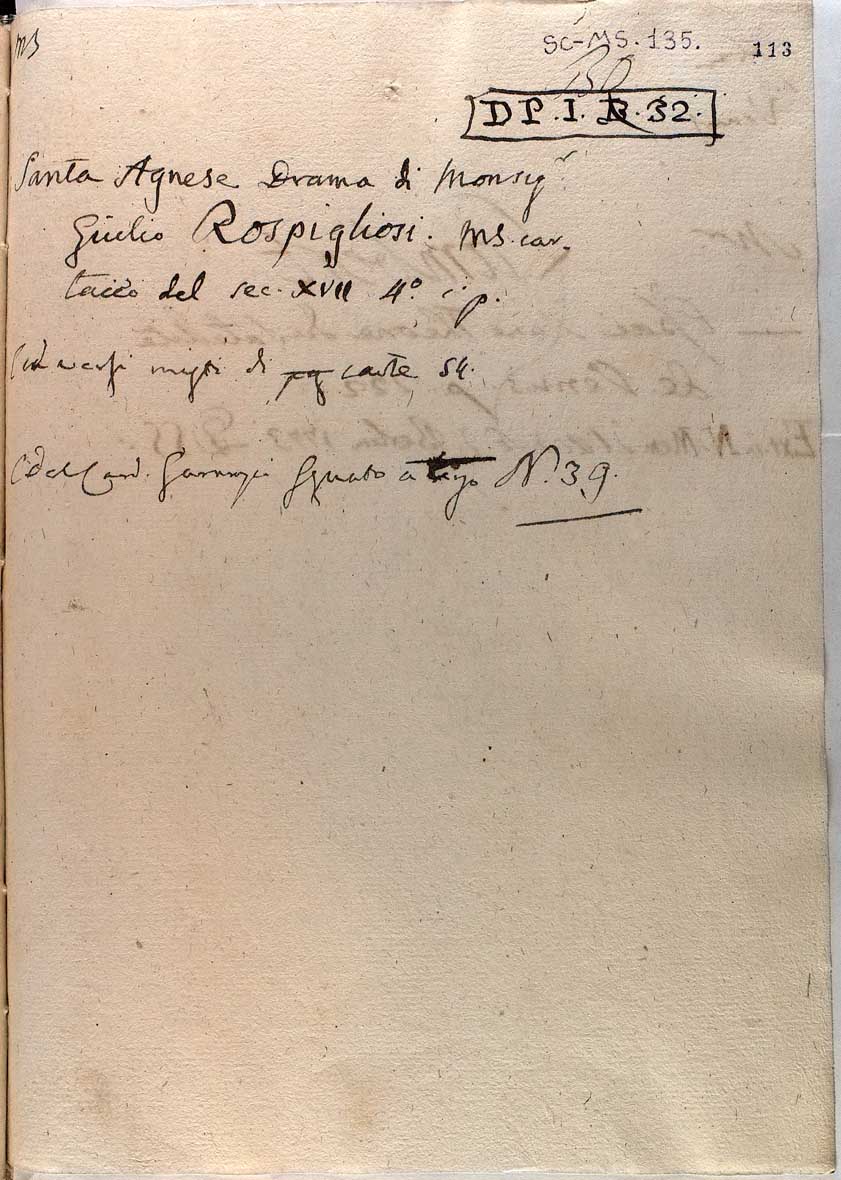 MS
SC-MS.135. 113
D P. I. B. 32.
Santa Agnese Drama di Monsig.r
Giulio Rospigliosi. MS. car-
taceo del sec. XVII 4.o in p.
Cod. a versi misti di carte 54.
Cod. del Card. Garampi segnato a N. 39.